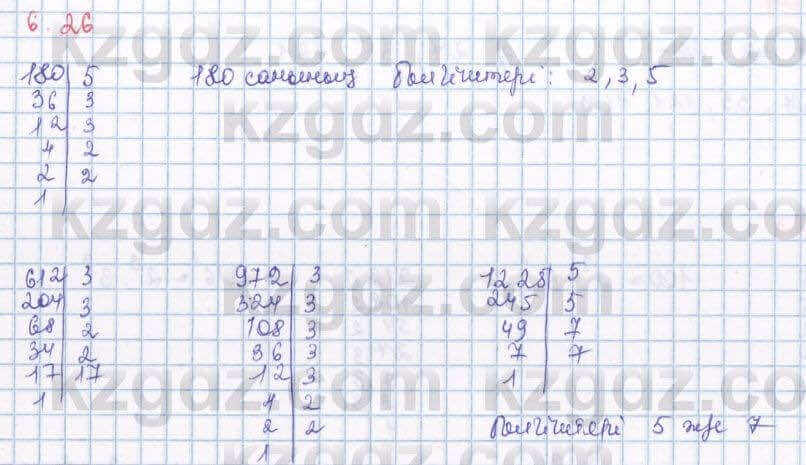 6.26
180 | 5 180 санының бөлгіштері: 2, 3, 5
36 | 3
12 | 3
4 | 2
2 | 2
1 |
612 | 3
204 | 3
68 | 2
34 | 2
17 | 17
1 |
972 | 3
324 | 3
108 | 3
36 | 3
12 | 3
4 | 2
2 | 2
1 |
1225 | 5
245 | 5
49 | 7
7 | 7
1 |
Бөлгіштері 5 және 7
kzgdz.com
kzgdz.com
kzgdz.com
kzgdz.com
kzgdz.com
kzgdz.com
kzgdz.com
kzgdz.com
kzgdz.com
kzgdz.com